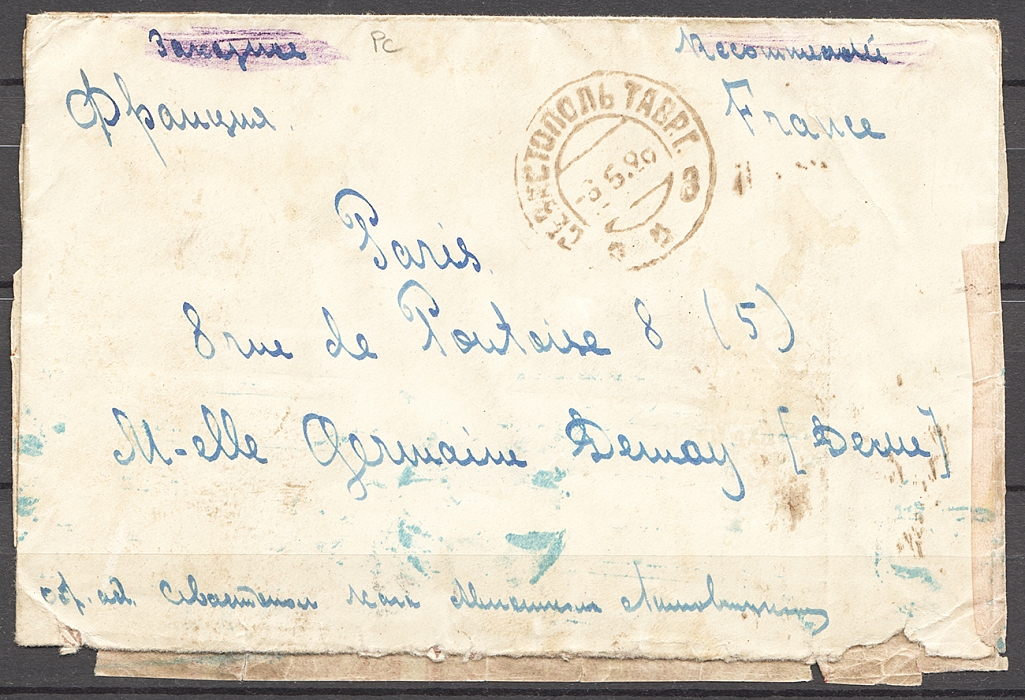 Заказное
PC
Recommandé
Франция.
France
СЕВАСТОПОЛЬ ТАВР.Г.
-6.5.20
Paris.
8 rue de Pontoise 8 (5)
M-elle Germaine Demay [Deme]
обр. ад. Севастополь